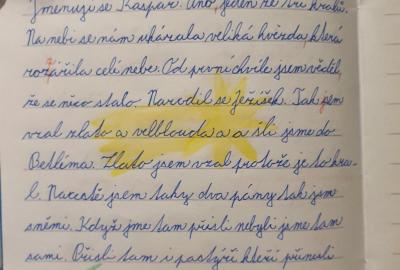 Jmenuji se Kaspar. Ano, jeden ze tří králů.
Na nebi se nám ukázala veliká hvězda, která
rozářila celé nebe. Od první chvíle jsem věděl,
že se něco stalo. Narodil se Ježíšek. Tak jsem
vzal zlato a velblouda a a šli jsme do
Betléma. Zlato jsem vzal protože je to kra-
l. Na cestě jsem taky dva pány tak jsm
snémi. Když jme tam přišli nebyli jsme tam
sami. Přišli tam i pastýři kteří přinesli